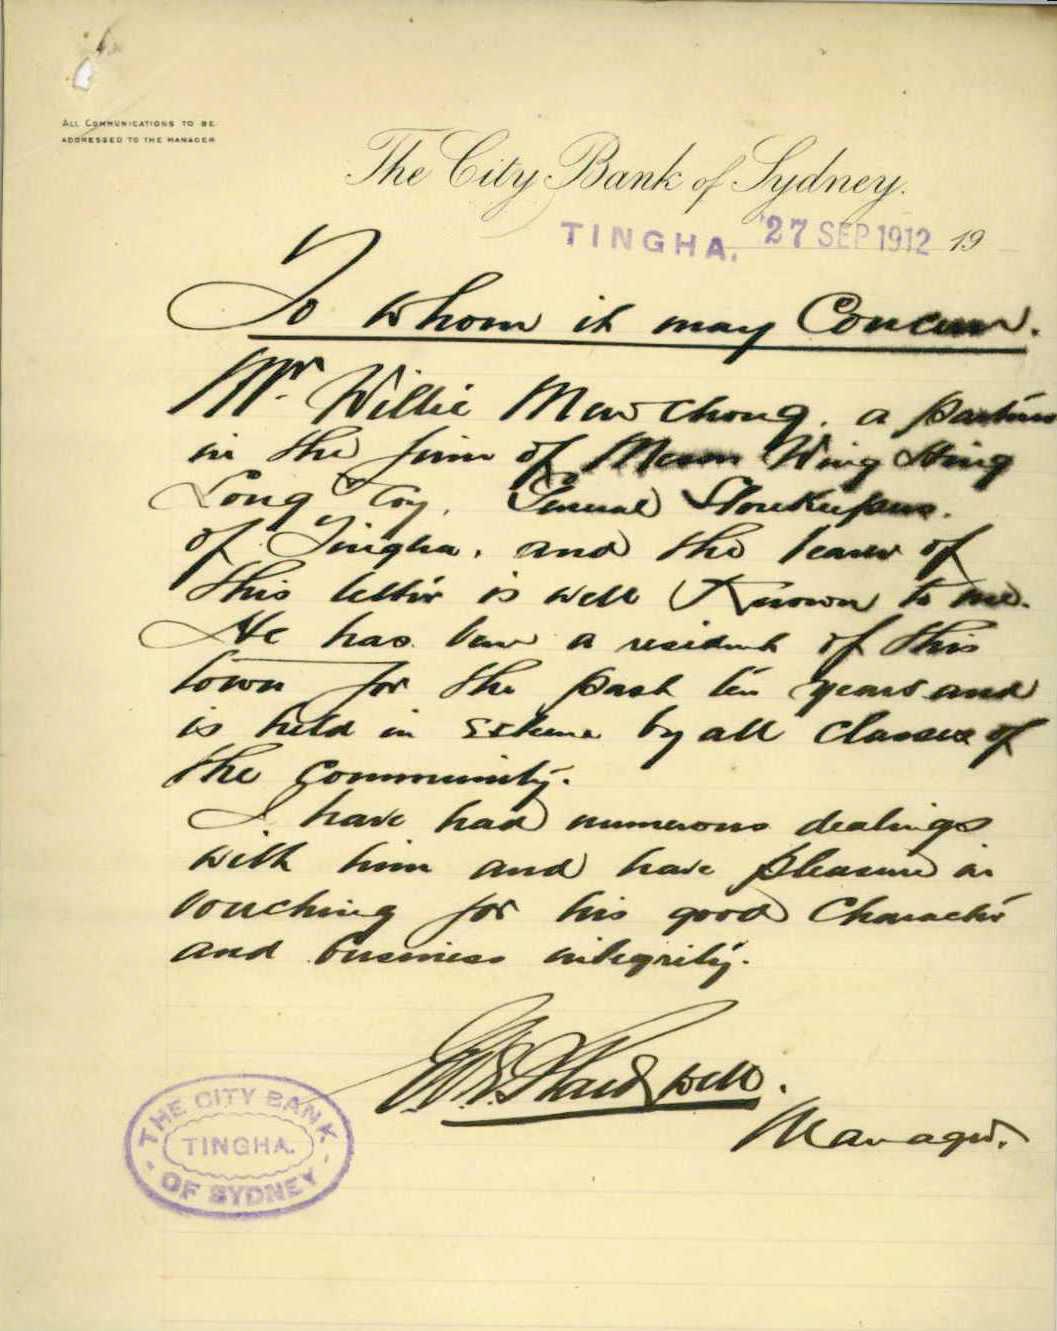 ALL COMMUNICATIONS TO BE
ADDRESSED TO THE MANAGER
The City Bank of Sydney.
TINGHA. 27 SEP 1912 19
To whom it may Concern.
Mr. Willie Mew Chong, a partner
in the firm of Messrs Wing Hing
Long & Coy, General Storekeepers.
of Tingha, and the bearer of
this letter is well Known to me.
He has been a resident of this
town for the past ten years and
is held in esteem by all classes of
the community.
I have had numerous dealings
with him and have pleasure in
vouching for his good Character
and business integrity.
Manager.
THE CITY BANK
TINGHA.
OF SYDNEY